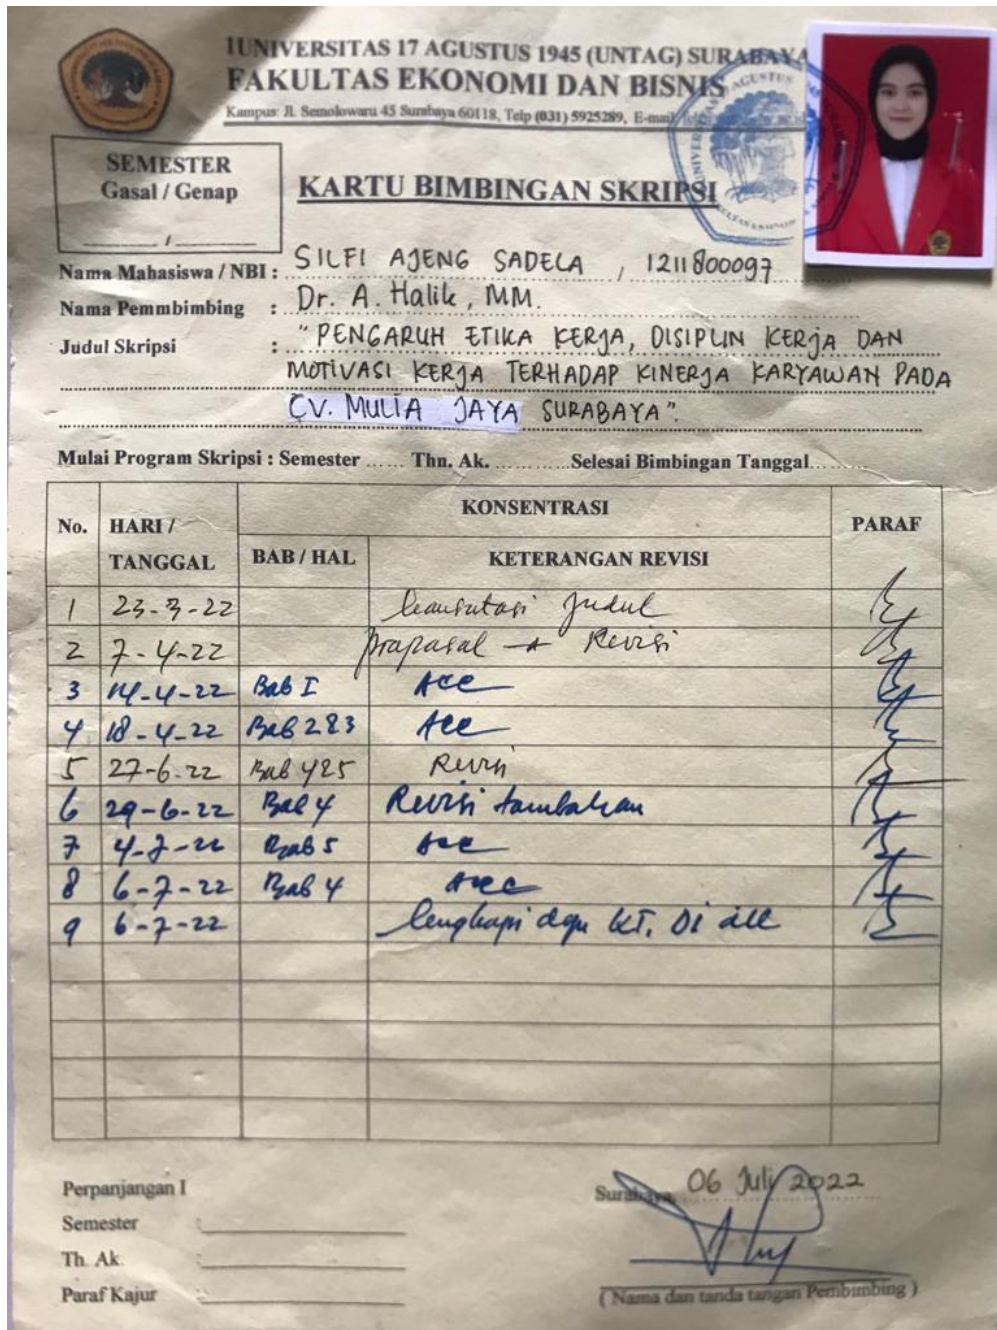 1UNIVERSITAS 17 AGUSTUS 1945 (UNTAG) SURABAYA
FAKULTAS EKONOMI DAN BISNIS
Kampus: Jl. Semolowaru 45 Surabaya 60118, Telp (031) 5925289, E-mail:
SEMESTER
Gasal / Genap
/
KARTU BIMBINGAN SKRIPSI
Nama Mahasiswa / NBI : SILFI AJENG SADELA , 1211800097
Nama Pemmbimbing : Dr. A. Halik, MM.
Judul Skripsi : "PENGARUH ETIKA KERJA, DISIPLIN KERJA DAN
MOTIVASI KERJA TERHADAP KINERJA KARYAWAN PADA
CV. MULIA JAYA SURABAYA".
Mulai Program Skripsi : Semester ...... Thn. Ak. ........... Selesai Bimbingan Tanggal..........
No. HARI / TANGGAL KONSENTRASI PARAF
BAB / HAL KETERANGAN REVISI
1 23-3-22 Judul
2 7-4-22 Revisi
3 14-4-22 Bab I Acc
4 18-4-22 Bab 2&3 Acc
5 27-6-22 Bab 4&5 Revisi
6 29-6-22 Bab 4 Revisi tambahan
7 4-7-22 Bab 5 Acc
8 6-7-22 Bab 4 Acc
9 6-7-22 lengkapi dgn
Perpanjangan I
Semester :
Th. Ak :
Paraf Kajur :
Surabaya, 06 Juli 2022
( Nama dan tanda tangan Pembimbing )